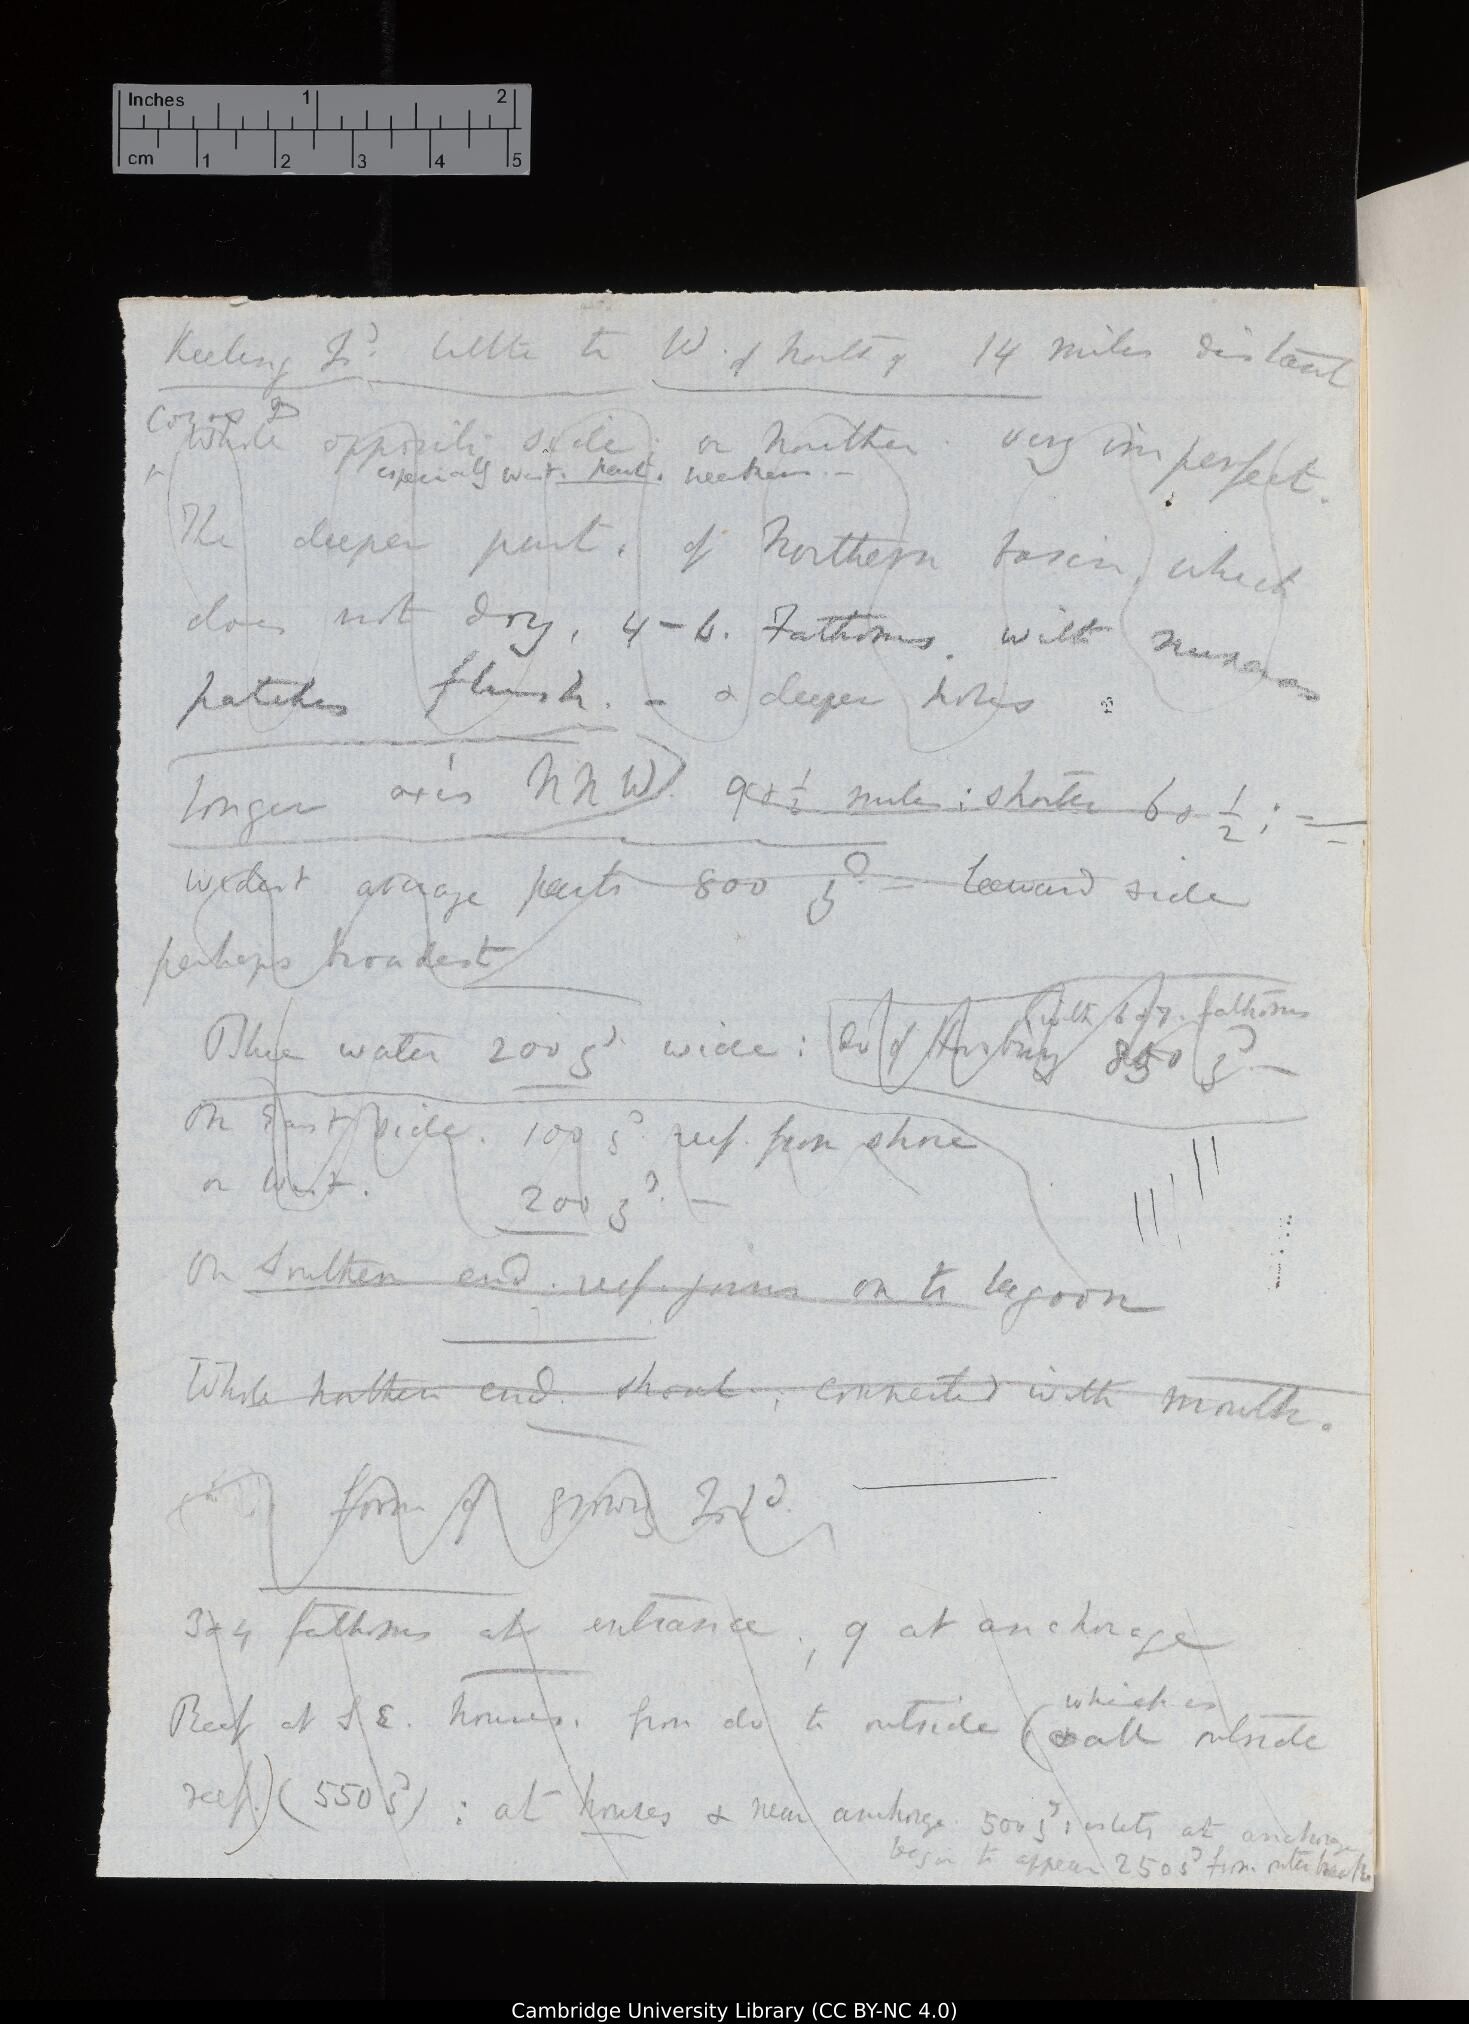 Inches 1 2
cm 1 2 3 4 5
Keeling Isd. little to W. of North 14 miles distant
Cocos
Whole opposite side; or Northern very imperfect.
especially west. part. weather —
The deeper part, of Northern basin, which
does not dry, 4-6. Fathoms, with numerous
patches flush. — & deeper holes
Longer axis NNW. 9 & 1/2 miles; shorter 6 & 1/2; =
widest average parts 800 yd = Leeward side
perhaps broadest
with 6 & 7. fathoms
Blue water 200 yd wide: Do of 850 yd —
On East side. 100 yd reef from shore
on West. 200 yd. —
On Southern end. reef joins on to lagoon
Whole northern end. shoal; connected with mouth.
form of Isld.
3 & 4 fathoms at entrance, 9 at anchorage
which is
Reef at S E. houses, from do to outside ( & all outside
reef.) (550 yd) : at houses & near anchorage 500 yd; islets at anchorage
begin to appear 250 yd from outer breakers